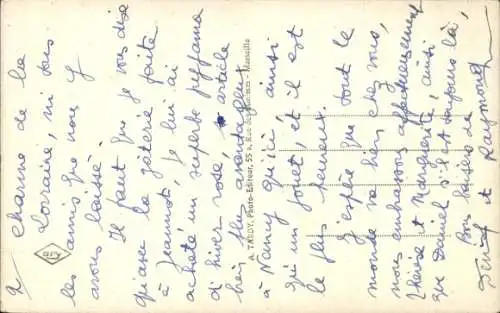 charme de la
Lorraine, ni tous
les amis que nous y
avons laissé.
Il faut que je vous dise
qu'avec la gâterie faite
à Jeannot, je lui ai
acheté un superbe pyjama
d'hiver rose article
bien plus avantageux
à Nancy qu'ici, ainsi
qu'un jouet, et il est
le plus heureux.
J'espère que tout le
monde va bien chez vous,
nous embrassons affectueusement
Thérèse et Marguerite ainsi
que Daniel s'il est toujours là,
Bons baisers de
et Raymond
A. TARDY, Photo-Editeur, 55 A, Rue - Marseille